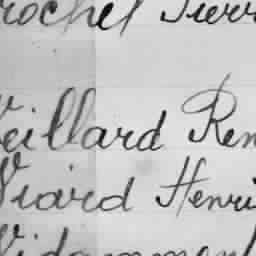 rochel Pierr
Veillard Ren
Viard Henri